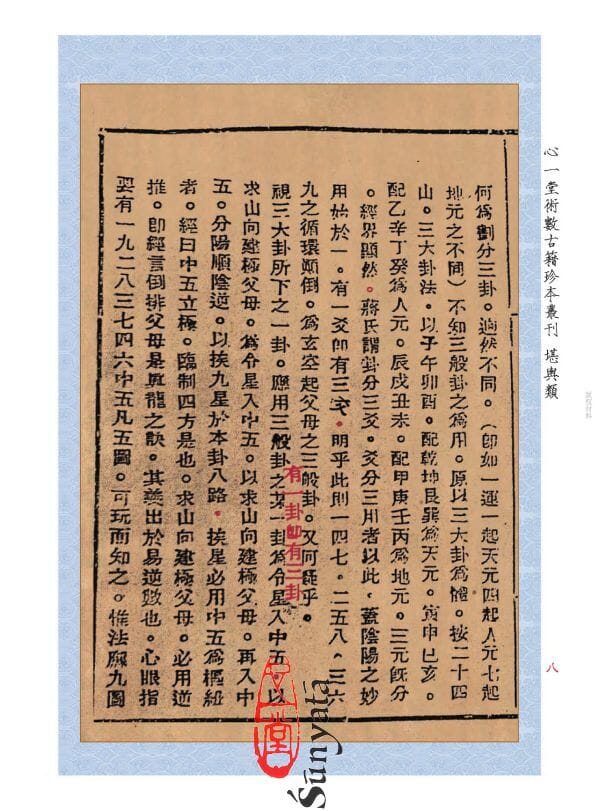 心一堂術數古籍珍本叢刊 堪輿類
八
何為劃分三卦。迥然不同。（即如一運一起天元四起人元七起
地元之不同）不知三般卦之為用。原以三大卦為體。按二十四
山。三大卦法。以子午卯酉。配乾坤艮巽為天元。寅申巳亥。
配乙辛丁癸為人元。辰戌丑未。配甲庚壬丙為地元。三元旣分
。經界顯然。蔣氏謂卦分三爻。爻分三用者以此。蓋陰陽之妙
用始於一。有一爻即有三爻。明乎此則一四七。二五八。三六
九之循環顚倒。為玄空起父母之三般卦。又何疑乎。
有一卦卽有三卦
視三大卦所下之一卦。應用三般卦之某一卦為令星入中五。以
求山向建極父母。為令星入中五。以求山向建極父母。再入中
五。分陽順陰逆。以挨九星於本卦八路。挨星必用中五為樞紐
者。經曰中五立極。臨制四方是也。求山向建極父母。必用逆
推。即經言倒排父母是眞龍之訣。其義出於易逆數也。心眼指
要有一九二八三七四六中五凡五圖。可玩而知之。惟法願九圖
心一堂
Śūnyatā